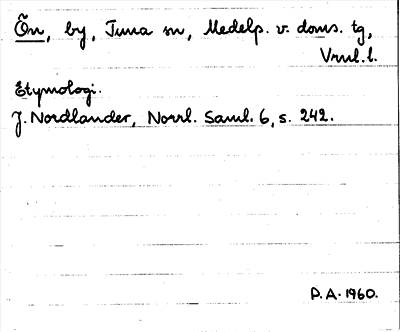 Ön, by, Tuna sn, Medelp. v. doms. tg,
Vrnl. l.
Etymologi.
J. Nordlander, Norrl. Saml. 6, s. 242.
P.A. 1960.